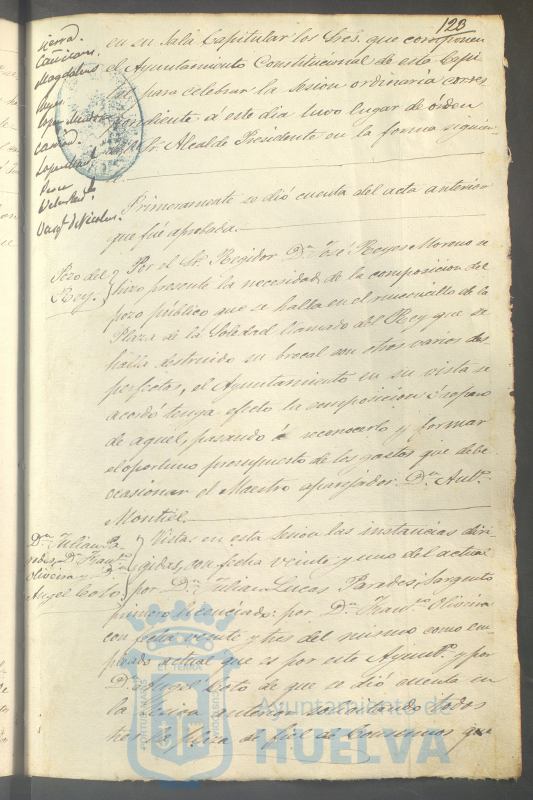 123
sierra.
Magdaleno
en su Sala Capitular los Sres. que componen
el Ayuntamiento Constitucional de esta Capi
tal para celebrar la sesion ordinaria corres
pondiente á este dia tuvo lugar de órden
Sr. Alcalde Presidente en la forma siguien
te.
Primeramente se dió cuenta del acta anterior
que fué aprobada.
Pozo del
Rey.
Por el Sr. Regidor Dn. José Reyes Moreno se
hizo presente la necesidad de la composicion del
pozo público que se halla en el
Plaza de la Soledad llamado del Rey que se
halla destruido su brocal con otros varios des
perfectos, el Ayuntamiento en su vista se
acordó tenga efecto la composicion ó reparo
de aquel, pasando á reconocerlo y formar
el oportuno presupuesto de los gastos que debe
ocasionar el Maestro aparejador Dn. Antº.
Montiel.
Dn. Julian Pa
redes, Dn. Franco.
Oliveira y Dn.
Angel Coto.
Vistas en esta sesion las instancias diri
gidas, con fecha veinte y uno del actual
por Dn. Julian Lucas Paredes, Sargento
primero licenciado: por Dn. Franco. Oliveira
con fecha veinte y tres del mismo como em
pleado actual que es por este Ayuntº. y por
Dn. Angel Coto de que se dió cuenta en
la anterior solicitando todos
tres la plaza de fiel de Consumos que
Ayuntamiento de
HUELVA